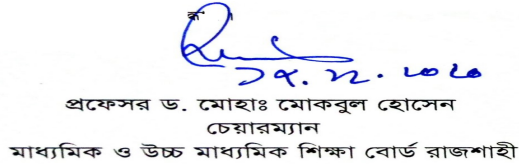 ১৫.১২.২০২০
প্রফেসর ড. মোহাঃ মোকবুল হোসেন
চেয়ারম্যান
মাধ্যমিক ও উচ্চ মাধ্যমিক শিক্ষা বোর্ড রাজশাহী